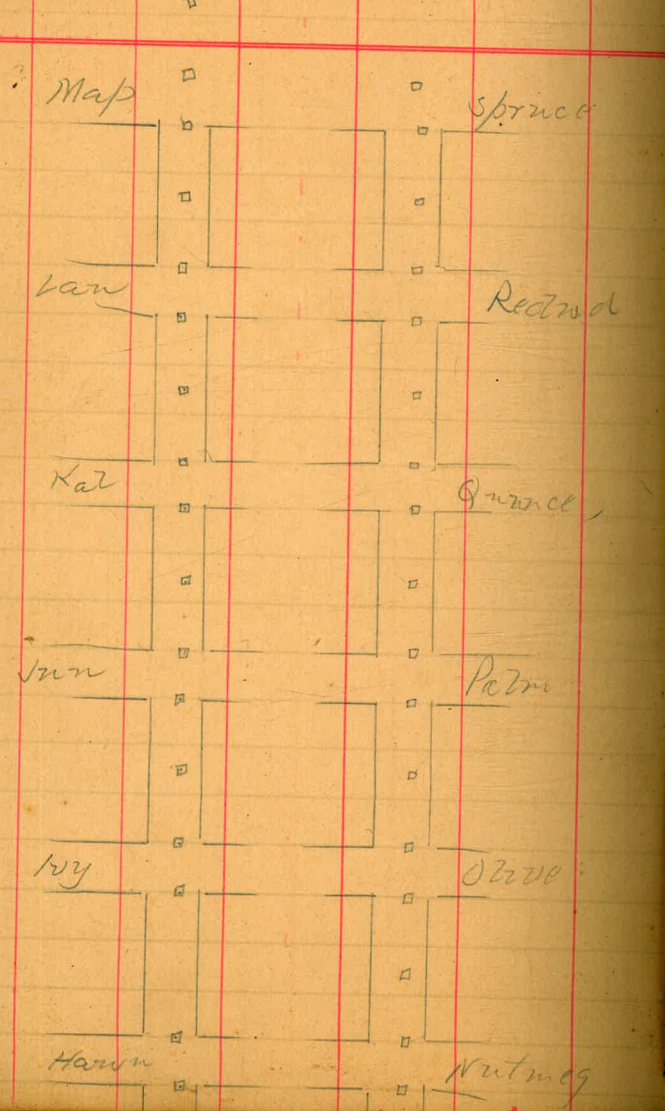 Map
Spruce
Lau
Redwd
Kal
Quince
Jun
Palm
Ivy
Olive
Hawn
Nutmeg